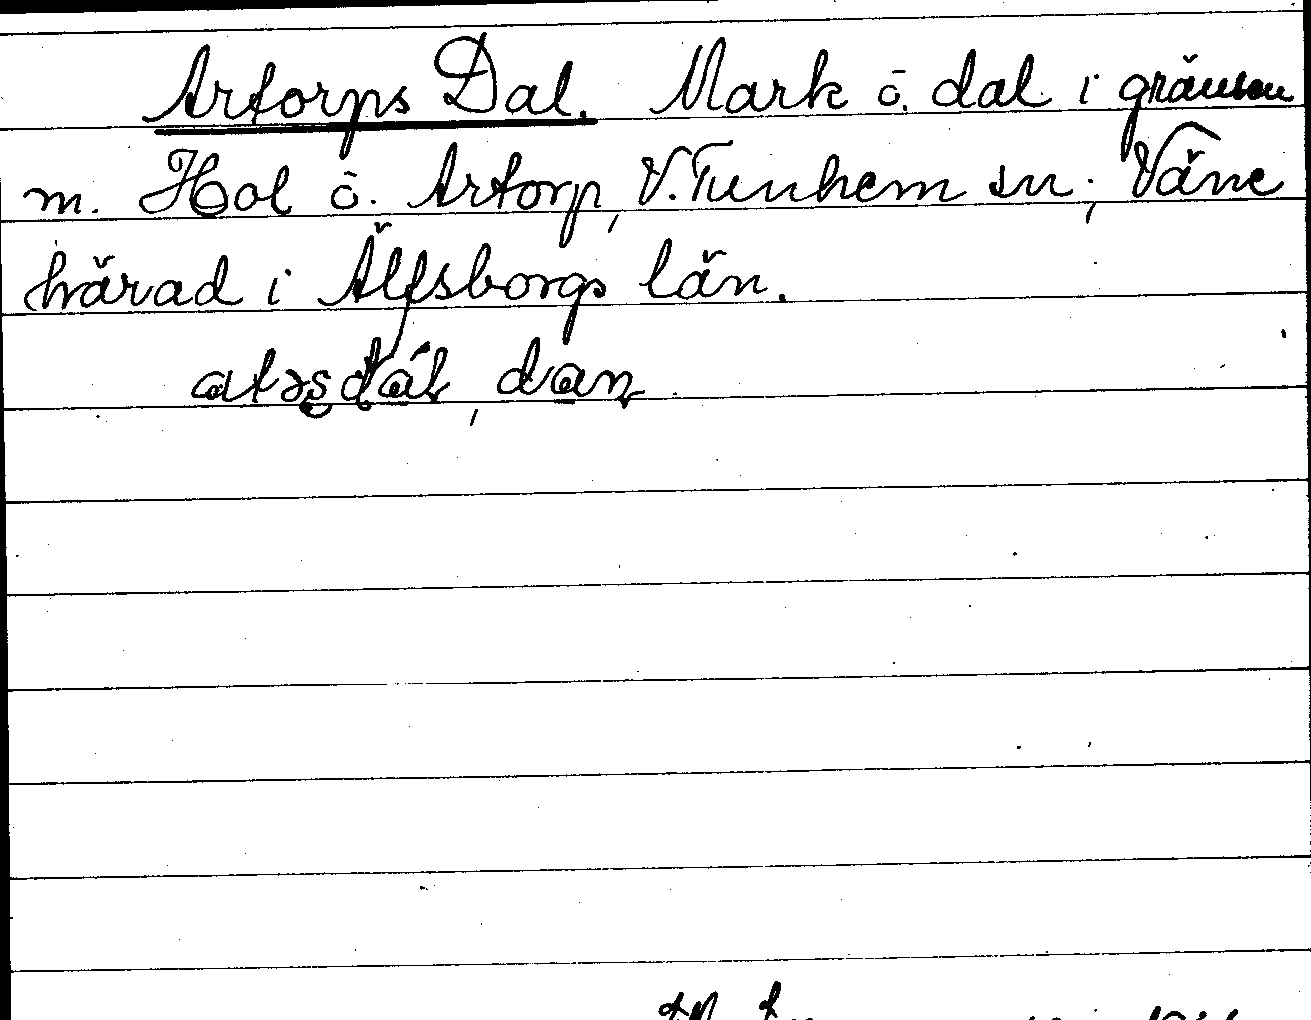 Artorps Dal. Mark o. dal i gränsen
m. Hol o. Artorp, V. Tunhem sn; Väne
härad i Älfsborgs län.
atəsdál, dan